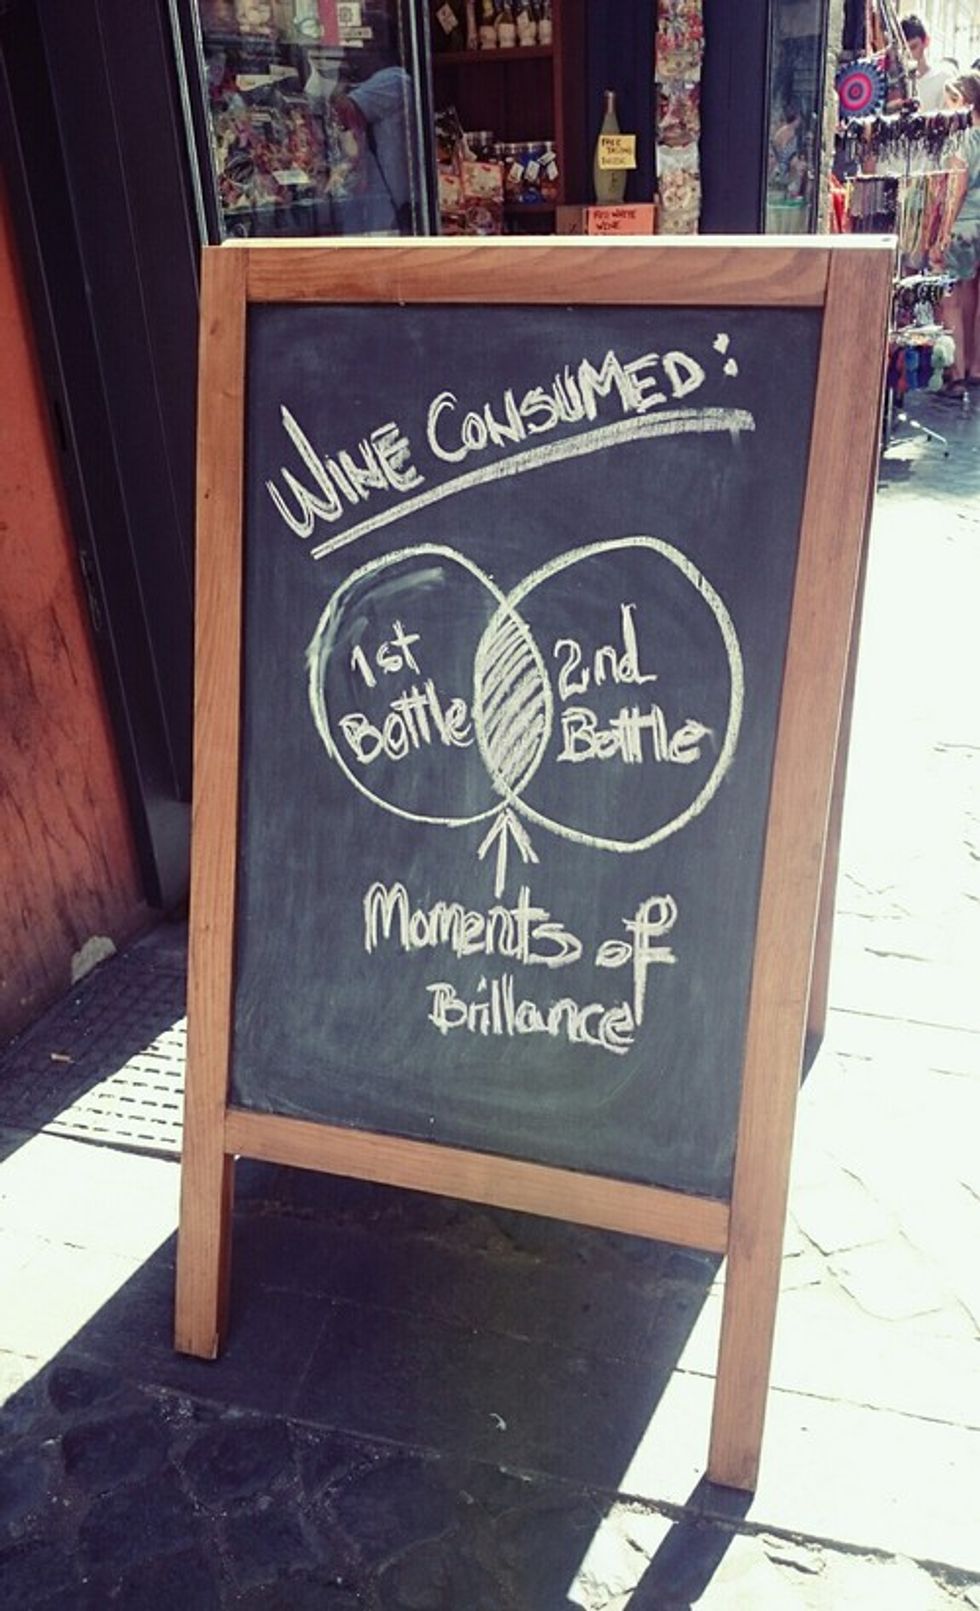 FREE
TASTING
INSIDE
RED WHITE
WINE
WINE CONSUMED:
1st
Bottle
2nd
Bottle
Moments of
Brillance